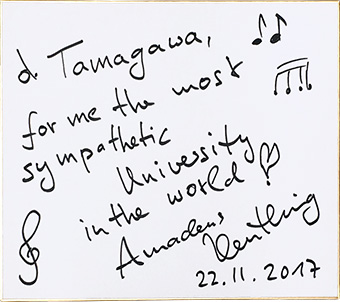 d Tamagawa,
for me the most
sympathetic
University
in the world
Amadeus
22.11.2017